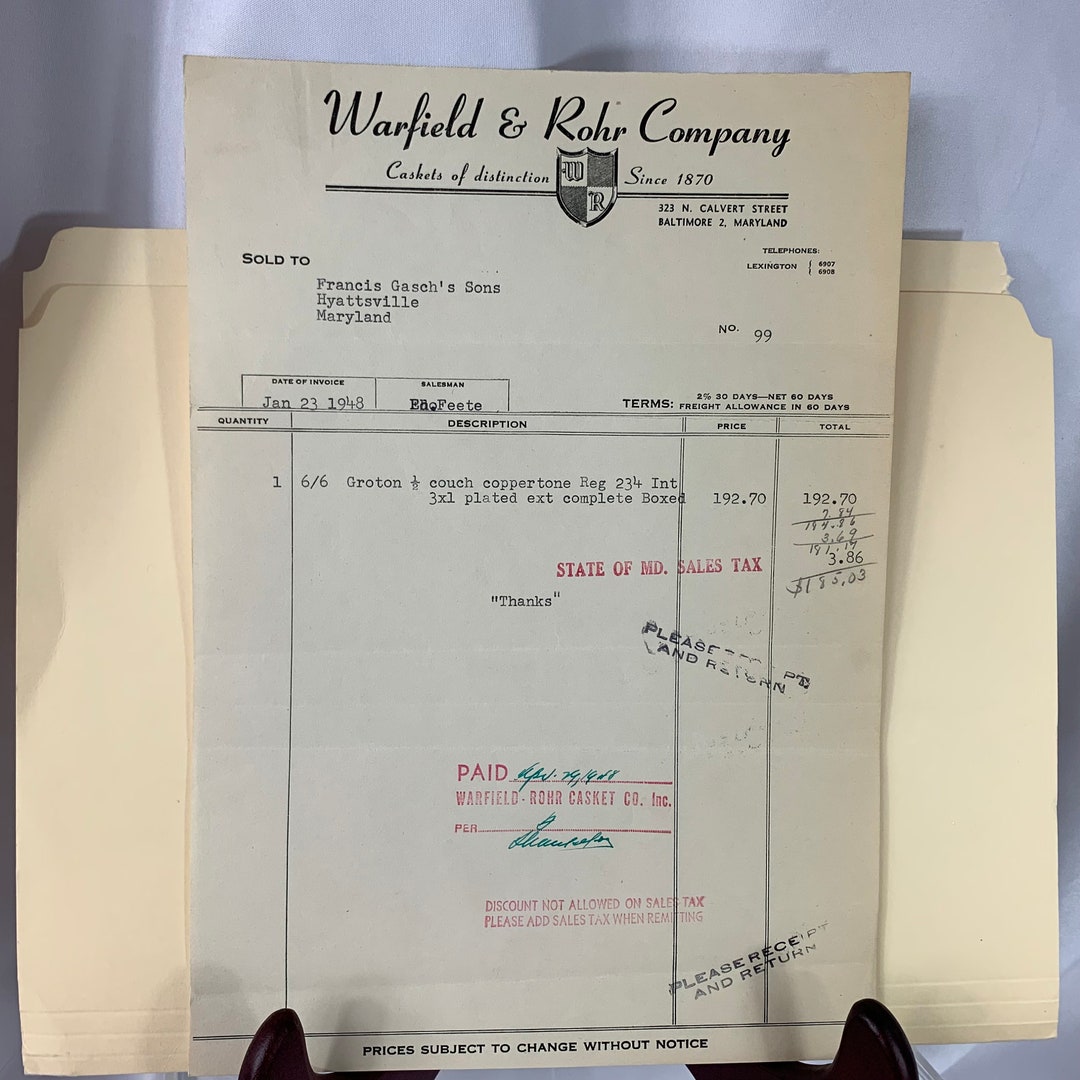 Warfield & Rohr Company
Caskets of distinction
Since 1870
W
R
323 N. CALVERT STREET
BALTIMORE 2, MARYLAND
TELEPHONES:
LEXINGTON { 6907
6908
SOLD TO
Francis Gasch's Sons
Hyattsville
Maryland
No. 99
DATE OF INVOICE
SALESMAN
Jan 23 1948
Feete
TERMS: 2% 30 DAYS—NET 60 DAYS
FREIGHT ALLOWANCE IN 60 DAYS
QUANTITY
DESCRIPTION
PRICE
TOTAL
1 6/6 Groton ½ couch coppertone Reg 234 Int
3xl plated ext complete Boxed 192.70 192.70
7.84
184.86
3.69
181.17
STATE OF MD. SALES TAX 3.86
$185.03
"Thanks"
PLEASE PT.
AND RETURN
PAID Apr. 29, 1948
WARFIELD-ROHR CASKET CO. Inc.
PER
DISCOUNT NOT ALLOWED ON SALES TAX
PLEASE ADD SALES TAX WHEN REMITTING
PLEASE RECEIPT
AND RETURN
PRICES SUBJECT TO CHANGE WITHOUT NOTICE